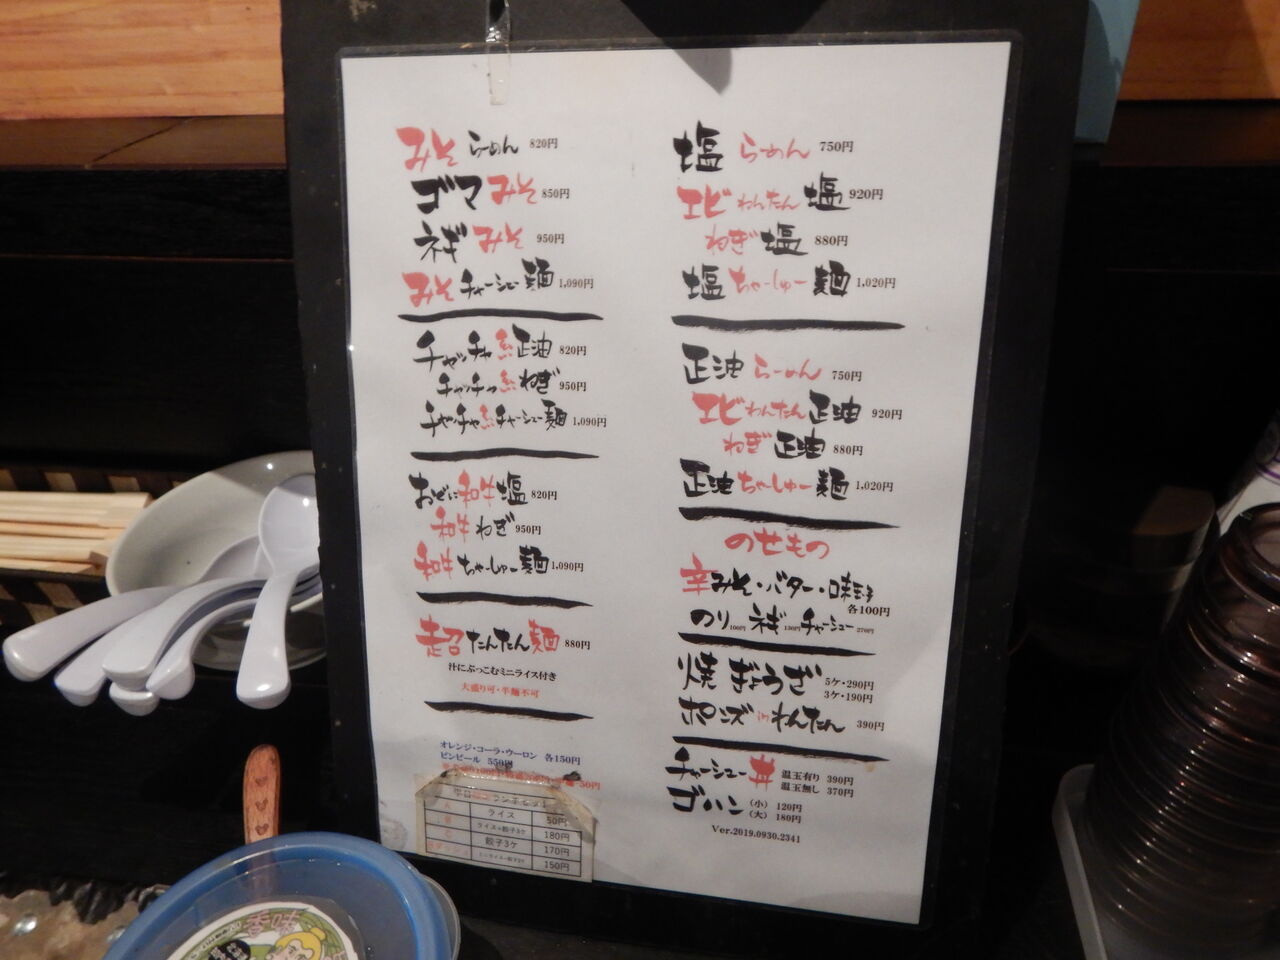 みそらーめん 820円
ゴマみそ 850円
ネギみそ 950円
みそチャーシュー麺 1,090円
チャッチャ系正油 820円
チャッチャ系ねぎ 950円
チャッチャ系チャーシュー麺 1,090円
和牛塩 820円
和牛ねぎ 950円
和牛ちゃーしゅー麺 1,090円
超たんたん麺 880円
汁にぶっこむミニライス付き
大盛り可・半麺不可
オレンジ・コーラ・ウーロン 各150円
ビンビール 550円
50円
ライス 50円
ライス+餃子3ケ 180円
餃子3ケ 170円
150円
塩らーめん 750円
エビわんたん塩 920円
ねぎ塩 880円
塩ちゃーしゅー麺 1,020円
正油らーめん 750円
エビわんたん正油 920円
ねぎ正油 880円
正油ちゃーしゅー麺 1,020円
のせもの
辛みそ・バター・味玉子
各100円
のり 100円 ネギ 130円 チャーシュー 270円
焼ぎょうざ 5ケ・290円
3ケ・190円
ポンズinわんたん 390円
チャーシュー丼 温玉有り 390円
温玉無し 370円
ゴハン (小) 120円
(大) 180円
Ver.2019.0930.2341